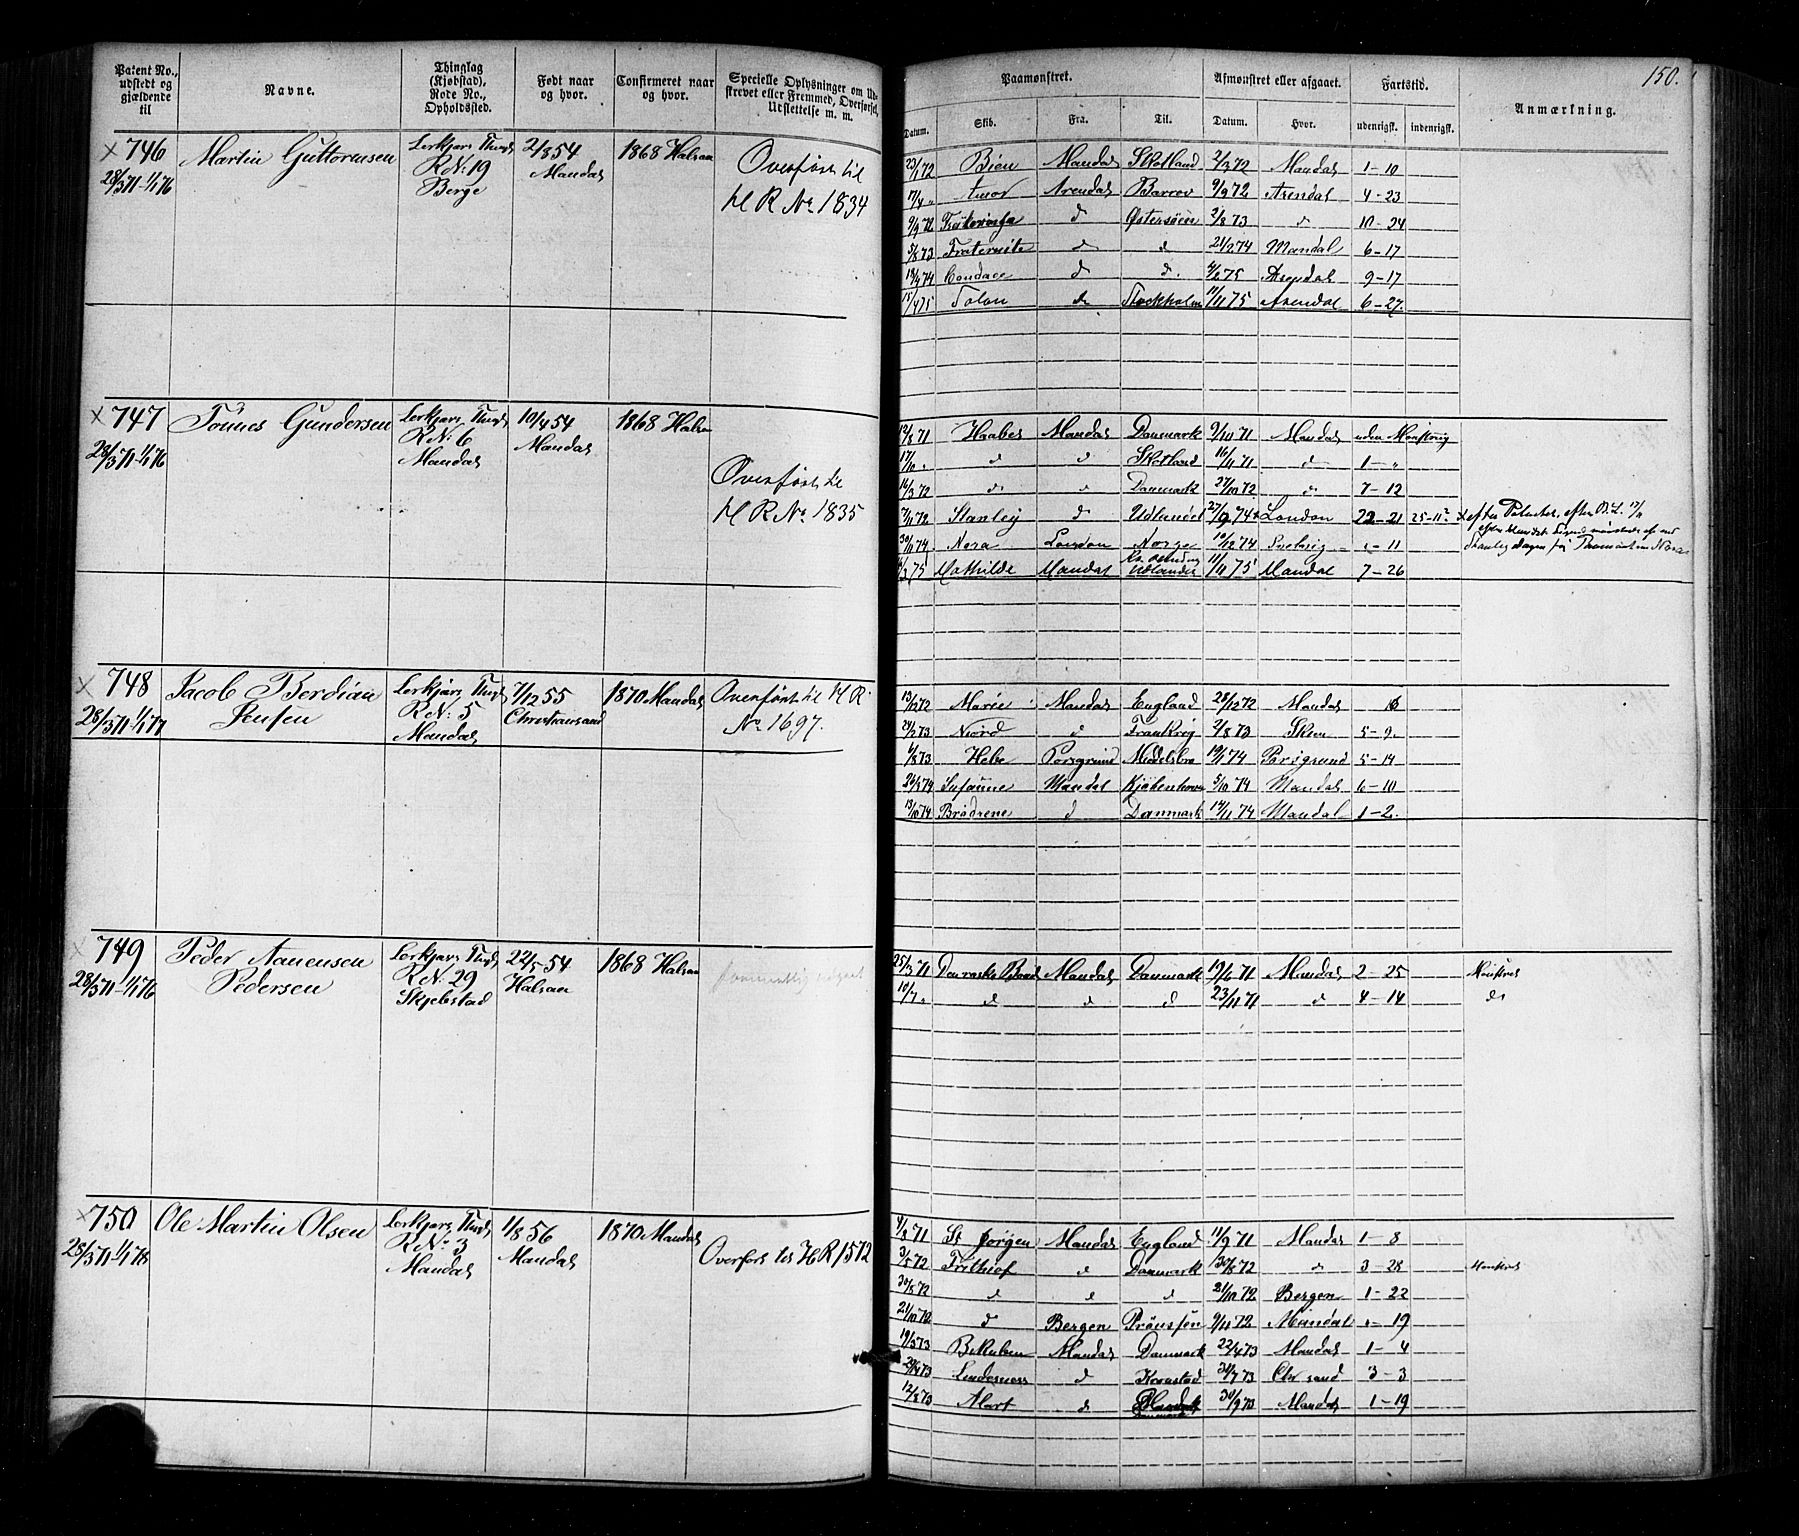 150.
Patent No., udstedt og gjældende til
Navne.
Thinglag (Kjøbstad), Rode No., Opholdssted.
Født naar og hvor.
Confirmeret naar og hvor.
Specielle Oplysninger om Udskrevet eller Fremmed, Overførsel, Udslettelse m. m.
Paamønstret.
Afmønstret eller afgaaet.
Fartstid.
Anmærkning.
Datum. Skib. Fra. Til. Datum. Hvor. udenrigst. indenrigst.
746 Martin Guttormsen
28/3 71 - 1/1 76
R.N: 19
Berge
2/8 54
Mandal
1868 Halsaa
Overført til
H R No 1834
23/1 72 Mandal Skotland 2/3 72 Mandal 1 - 10
17/4 " Amor Arendal Barrow 9/9 72 Arendal 4 - 23
9/9 72 d Østersøen 2/8 73 d 10 - 24
5/8 73 d d 21/2 74 Mandal 6 - 17
Candace d d. Arendal 9 - 17
Solon d Stockholm 11/11 75 Arendal 6 - 27.
747 Tönnes Gundersen
28/3 71 - 1/1 76
R N: 6
Mandal
10/4 54
Mandal
1868 Halsaa
Overført til
H R No 1835
12/8 71 Haabet Mandal Danmark 9/10 71 Mandal uden Mønstring
17/10 " d d Skotland 16/11 71 d 1 - "
16/3 72 d d Danmark 27/10 72 d 7 - 12
7/11 72 Stanley d Udlandet London 22 - 21
30/11 74 Nora London Norge 10/12 74 " - 11
Mathilde Mandal Udlandet 11/11 75 Mandal 7 - 26
748 Jacob Berdian
Jensen
28/3 71 - 1/1 77
R N: 5
Mandal
7/12 55
Christiansand
1870 Mandal
Overført til H R
No 1697.
Marie Mandal England 28/12 72 Mandal
24/2 73 Niord d Frankrig 2/8 73 Skien 5 - 9.
6/8 73 Hebe Porsgrund Middelsbro 19/1 74 Porsgrund 5 - 14
Susanne Mandal Kjøbenhavn 5/10 74 Mandal 6 - 10
13/10 74 Brødrene d Danmark 14/11 74 Mandal 1 - 2.
749 Peder Aanensen
Pedersen
28/3 71 - 1/1 76
R N: 29
Skjebstad
22/5 54
Halsaa
1868 Halsaa
25/3 71 Mandal Danmark 19/6 71 Mandal 2 - 25
10/7 " d d d 23/11 71 d 4 - 14
750 Ole Martin Olsen
28/3 71 - 1/1 78
R N: 3
Mandal
1/8 56
Mandal
1870 Mandal
Overført til H R 1572
4/8 71 St Jörgen Mandal England 11/9 71 Mandal 1 - 8
3/5 72 Frithiof d Danmark 30/8 72 d 3 - 28
30/8 72 d d d 21/10 72 Bergen 1 - 22
21/10 72 d Bergen 9/11 72 Mandal " - 19
19/3 73 Mandal Danmark 22/4 73 Mandal 1 - 4
Lindesness d Kronstad 31/7 73 Chr sand 3 - 3
12/8 73 Alart d Danmark 30/9 73 Mandal 1 - 19